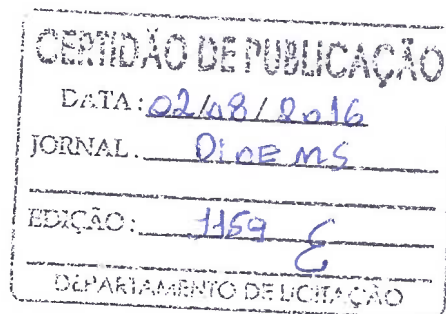 CERTIDÃO DE PUBLICAÇÃO
DATA: 02/08/2016
JORNAL. DIOEMS
EDIÇÃO: 1159
DEPARTAMENTO DE LICITAÇÃO